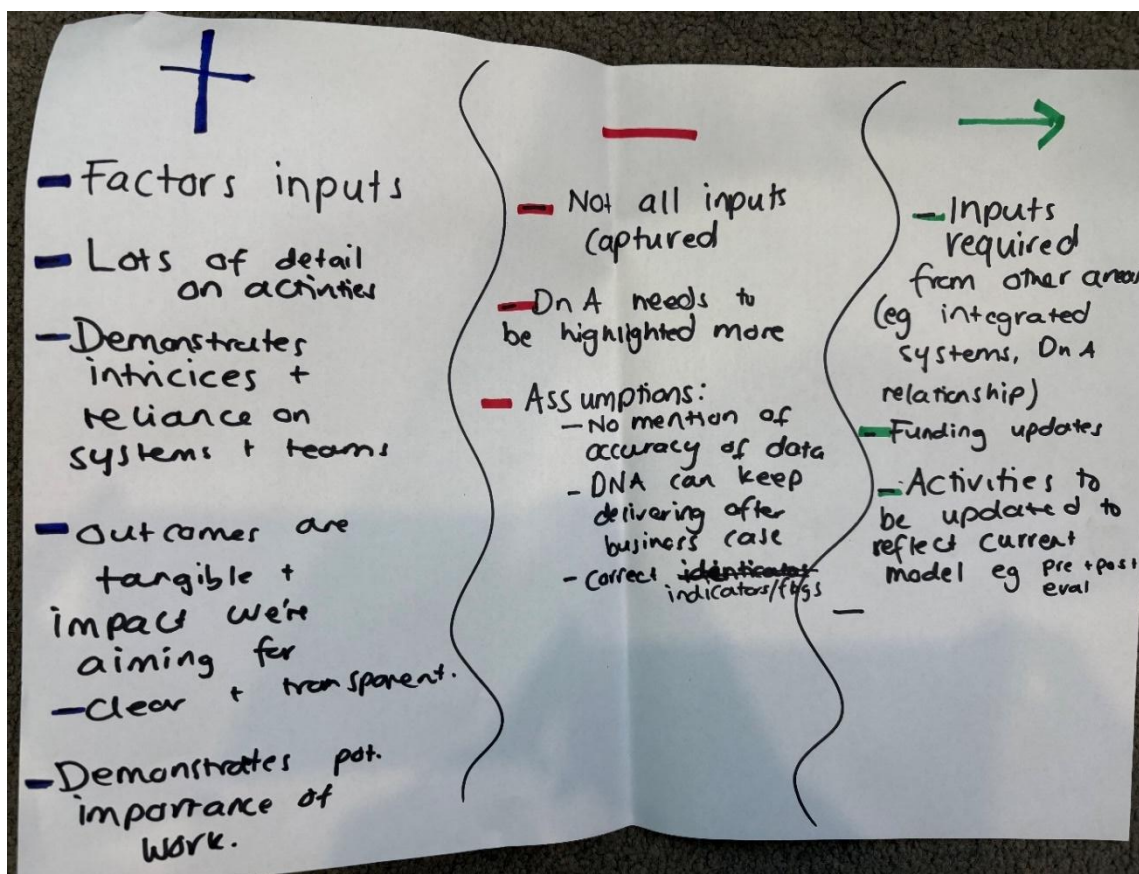 +
- Factors inputs
- Lots of detail
on activities
- Demonstrates
intricices +
reliance on
systems + teams
- Outcomes are
tangible +
impact we're
aiming for
- Clear + transparent.
- Demonstrates pot.
importance of
work.
—
- Not all inputs
captured
- DnA needs to
be highlighted more
- Assumptions:
- No mention of
accuracy of data
- DNA can keep
delivering after
business case
- correct
indicators/flags
→
- Inputs
required
from other areas
(eg integrated
systems, DnA
relationship)
- Funding updates
- Activities to
be updated to
reflect current
model eg pre + post
eval
-